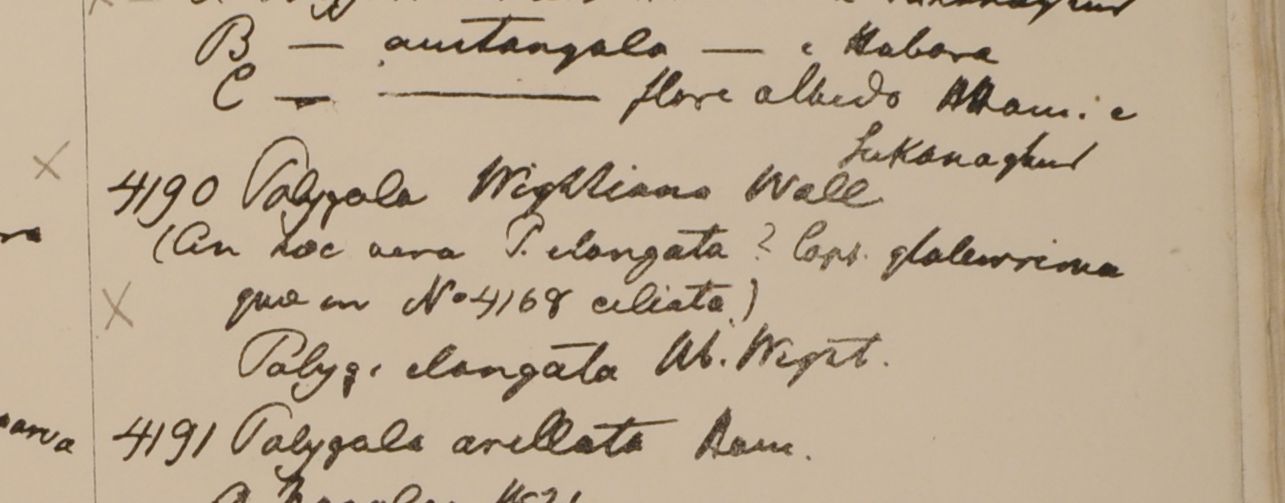 B — austangala — e Habora
C — — flore albedo HHam. e
Sukanaghur
4190 Polygala Wightiana Wall
(An hoc vera P. elongata? Caps. glaberrima
quae in No 4168 ciliata.)
Polyg. elongata Hb. Wight.
4191 Polygala arillata Ham.